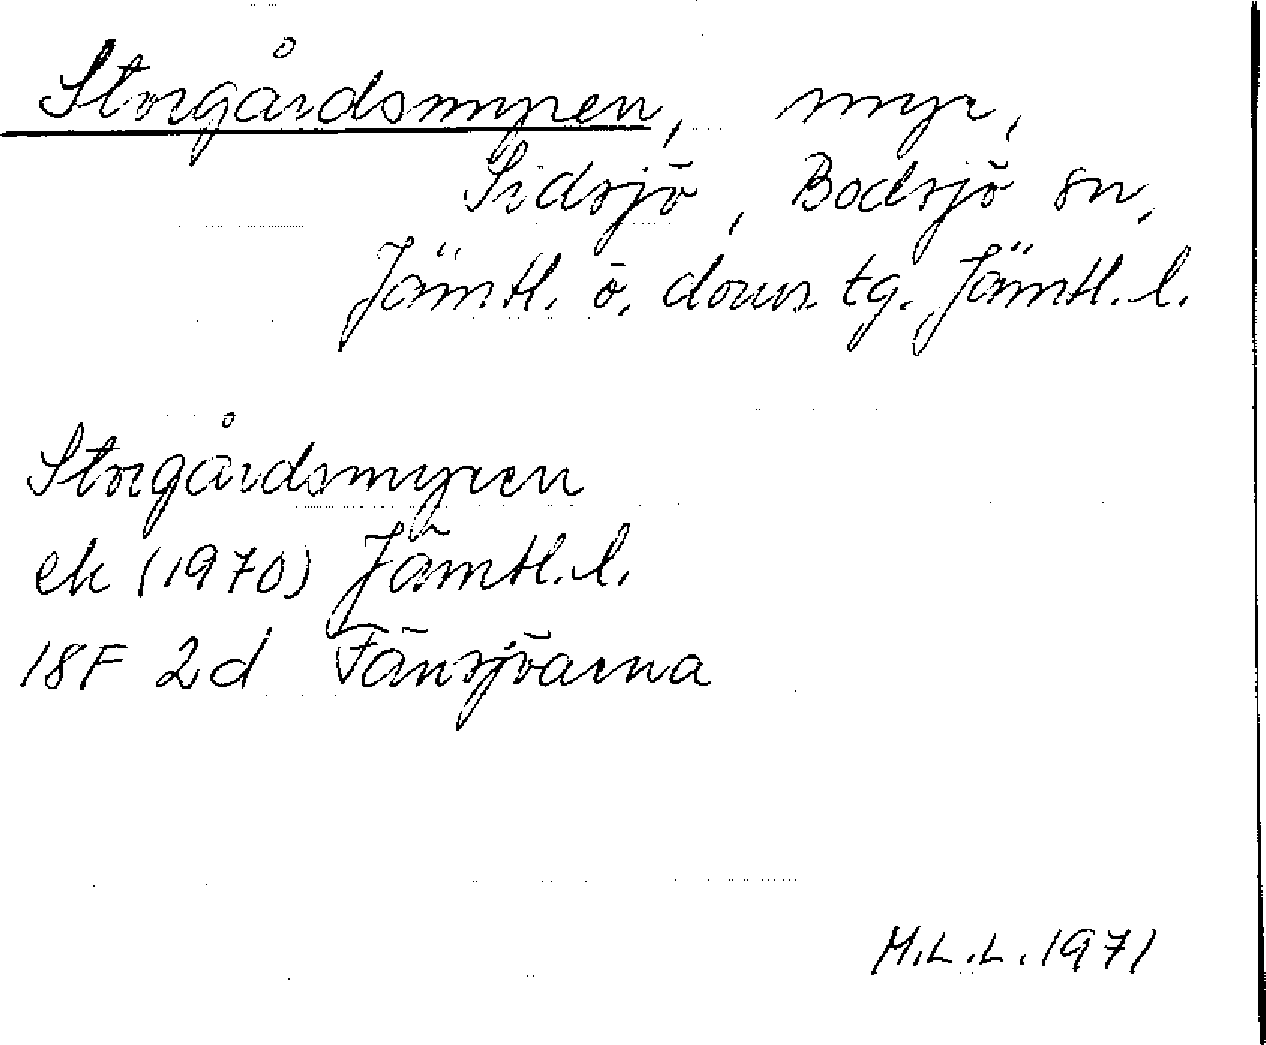 Storgårdsmyren, myr,
Sidsjö, Bodsjö sn,
Jämtl. ö. doms. tg. Jämtl. l.
Storgårdsmyren
ek (1970) Jämtl. l.
18F 2d Fänsjöarna
M.L.L. 1971